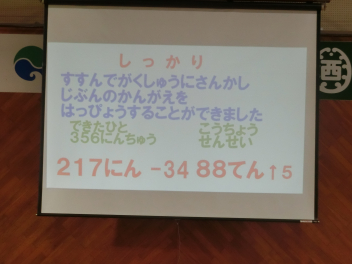 しっかり
すすんでがくしゅうにさんかし
じぶんのかんがえを
はっぴょうすることができました
できたひと こうちょう
356にんちゅう せんせい
217にん -34 88てん↑5
西